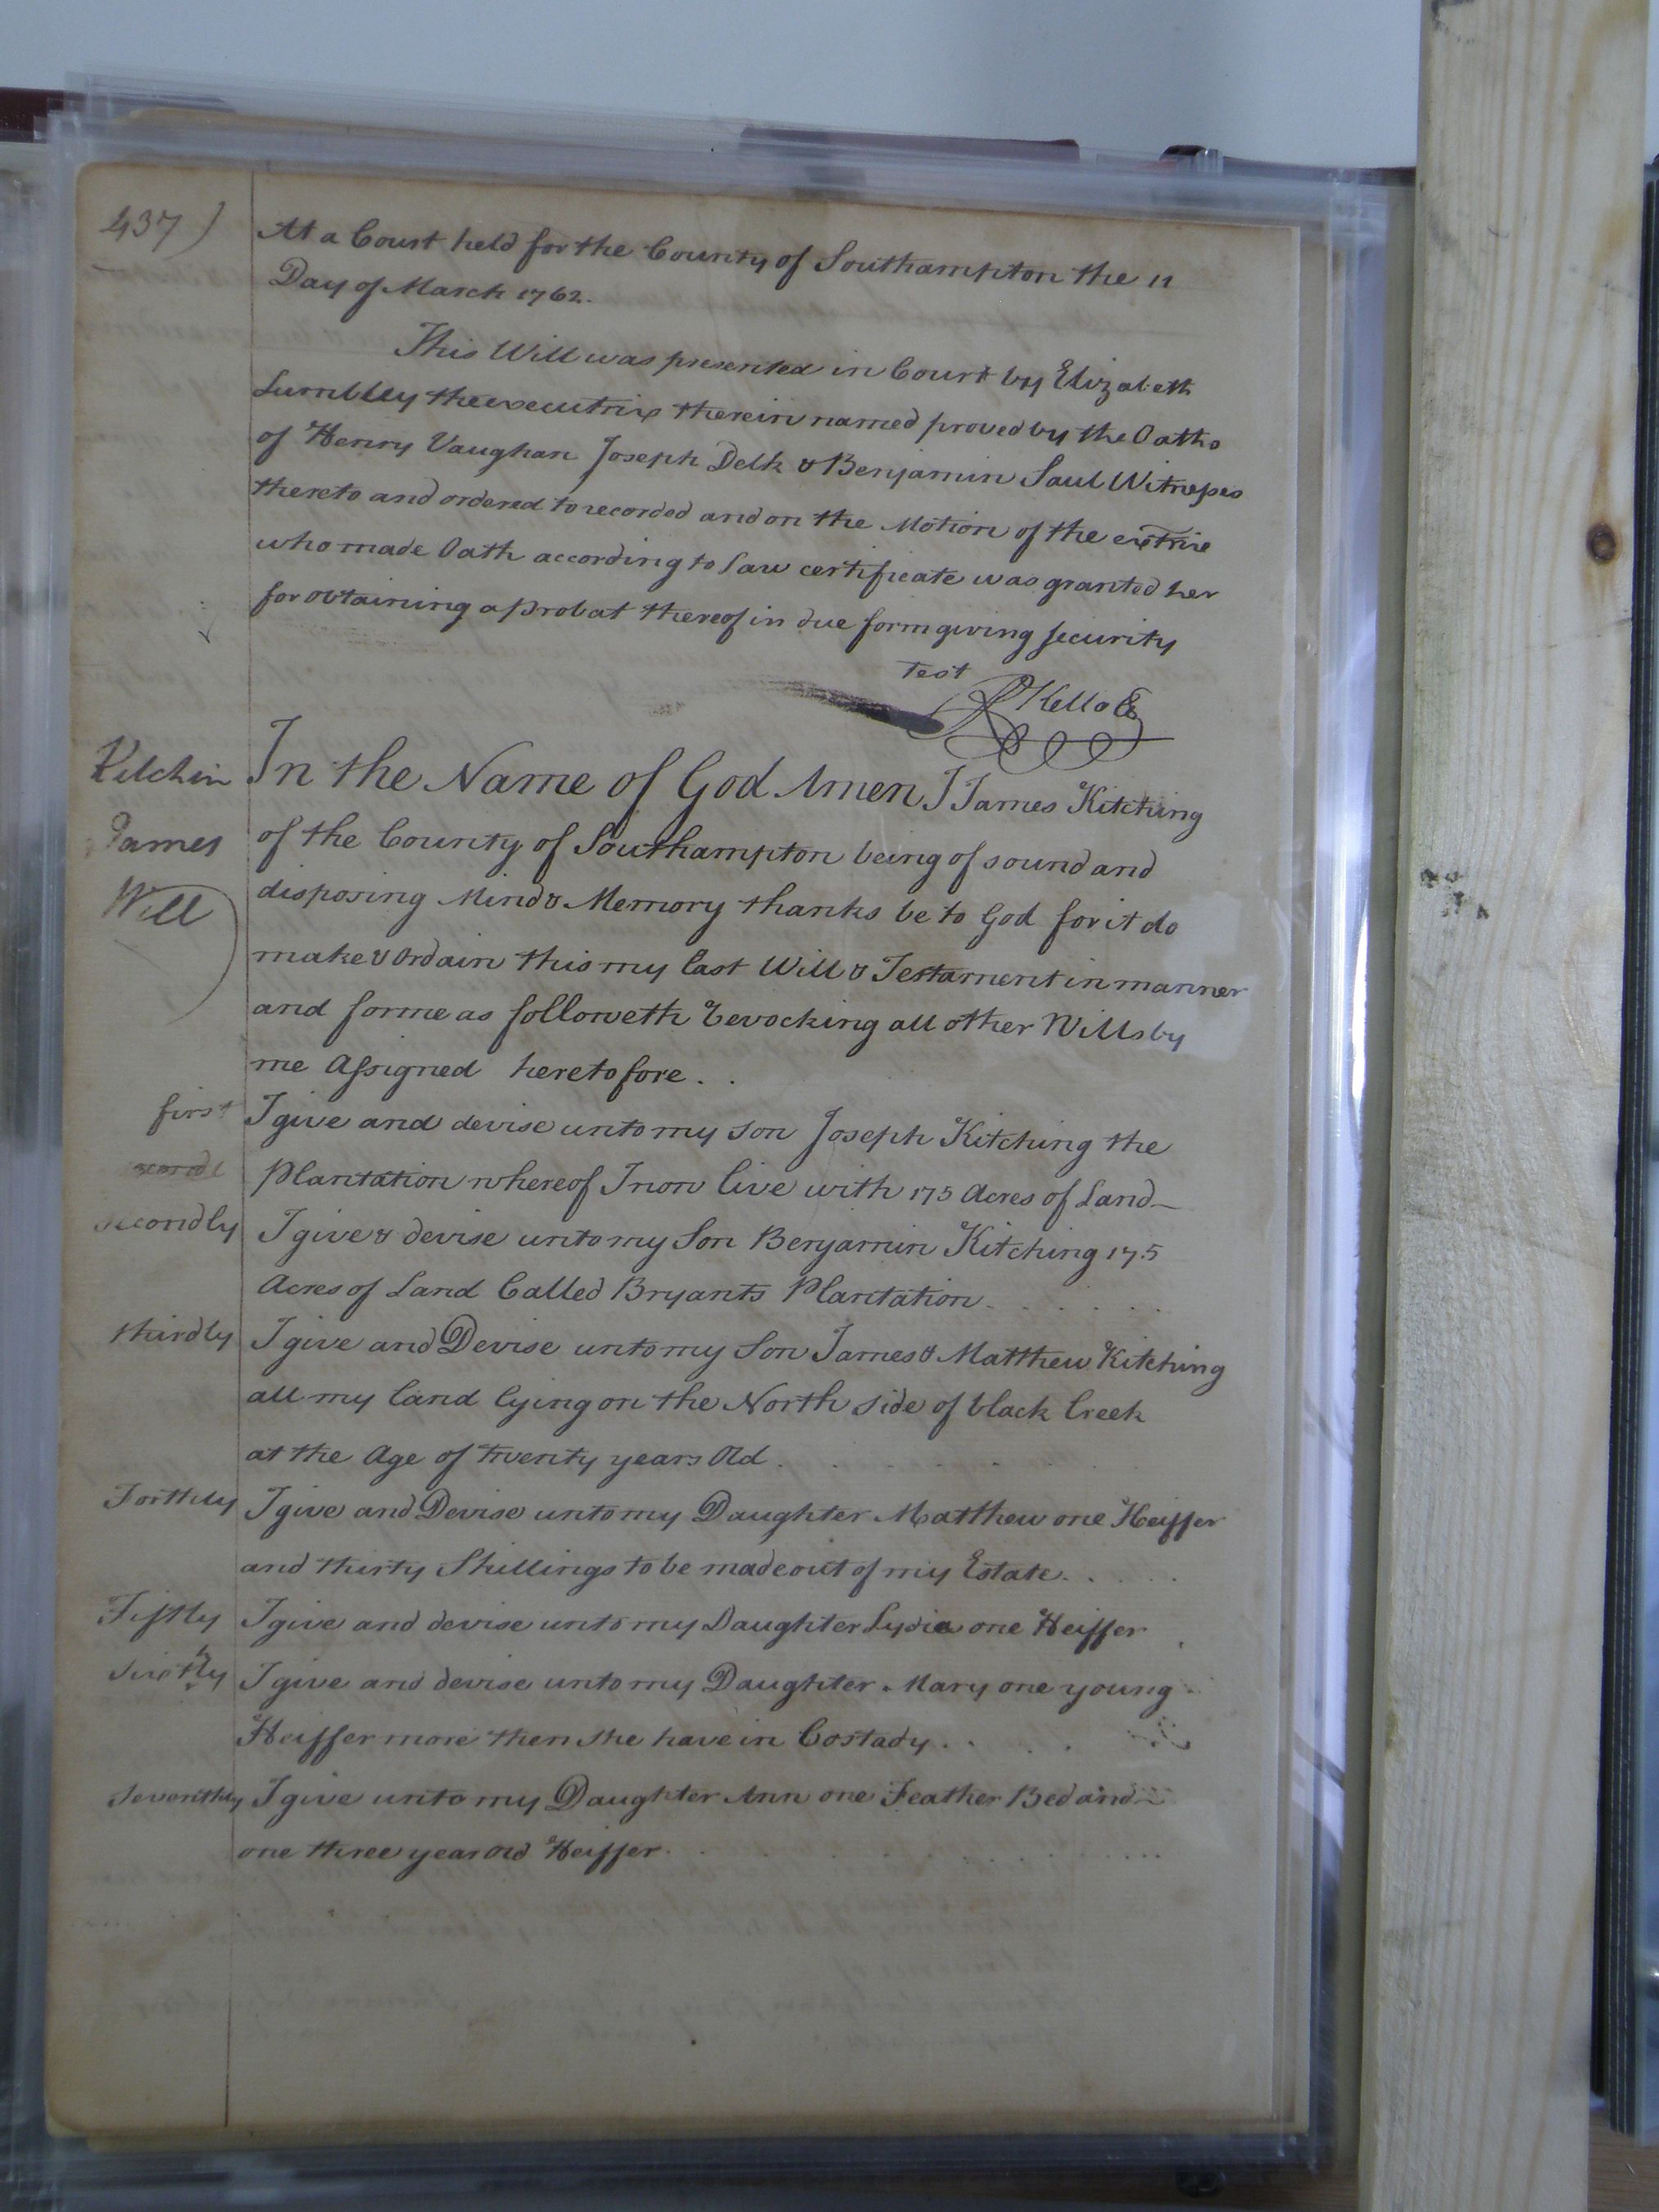 437)
At a Court held for the County of Southampton the 11
Day of March 1762.
This Will was presented in Court by Elizabeth
Lumbly the executrix therein named proved by the Oaths
of Henry Vaughan Joseph Delk & Benjamin Saul Witnesses
thereto and ordered to recorded and on the Motion of the extrix
who made Oath according to Law certificate was granted her
for obtaining a probat thereof in due form giving security
Test
R Kello
Kitchin In the Name of God Amen I James Kitching
James of the County of Southampton being of sound and
Will disposing Mind & Memory thanks be to God for it do
make & Ordain this my last Will & Testament in manner
and forme as followeth revocking all other Wills by
me Assigned heretofore . .
first I give and devise unto my son Joseph Kitching the
Plantation whereof I now live with 175 Acres of Land
secondly I give & devise unto my Son Benjamin Kitching 175
Acres of Land Called Bryants Plantation
thirdly I give and Devise unto my Son James & Matthew Kitching
all my land lying on the North side of black Creek
at the Age of twenty years Old
Forthly I give and Devise unto my Daughter Matthew one Heiffer
and thirty Shillings to be made out of my Estate
Fiftly I give and devise unto my Daughter Lydia one Heiffer
Sixthly I give and devise unto my Daughter Mary one young
Heiffer more then she have in Costady
Seventhly I give unto my Daughter Ann one Feather Bed and
one three year old Heiffer